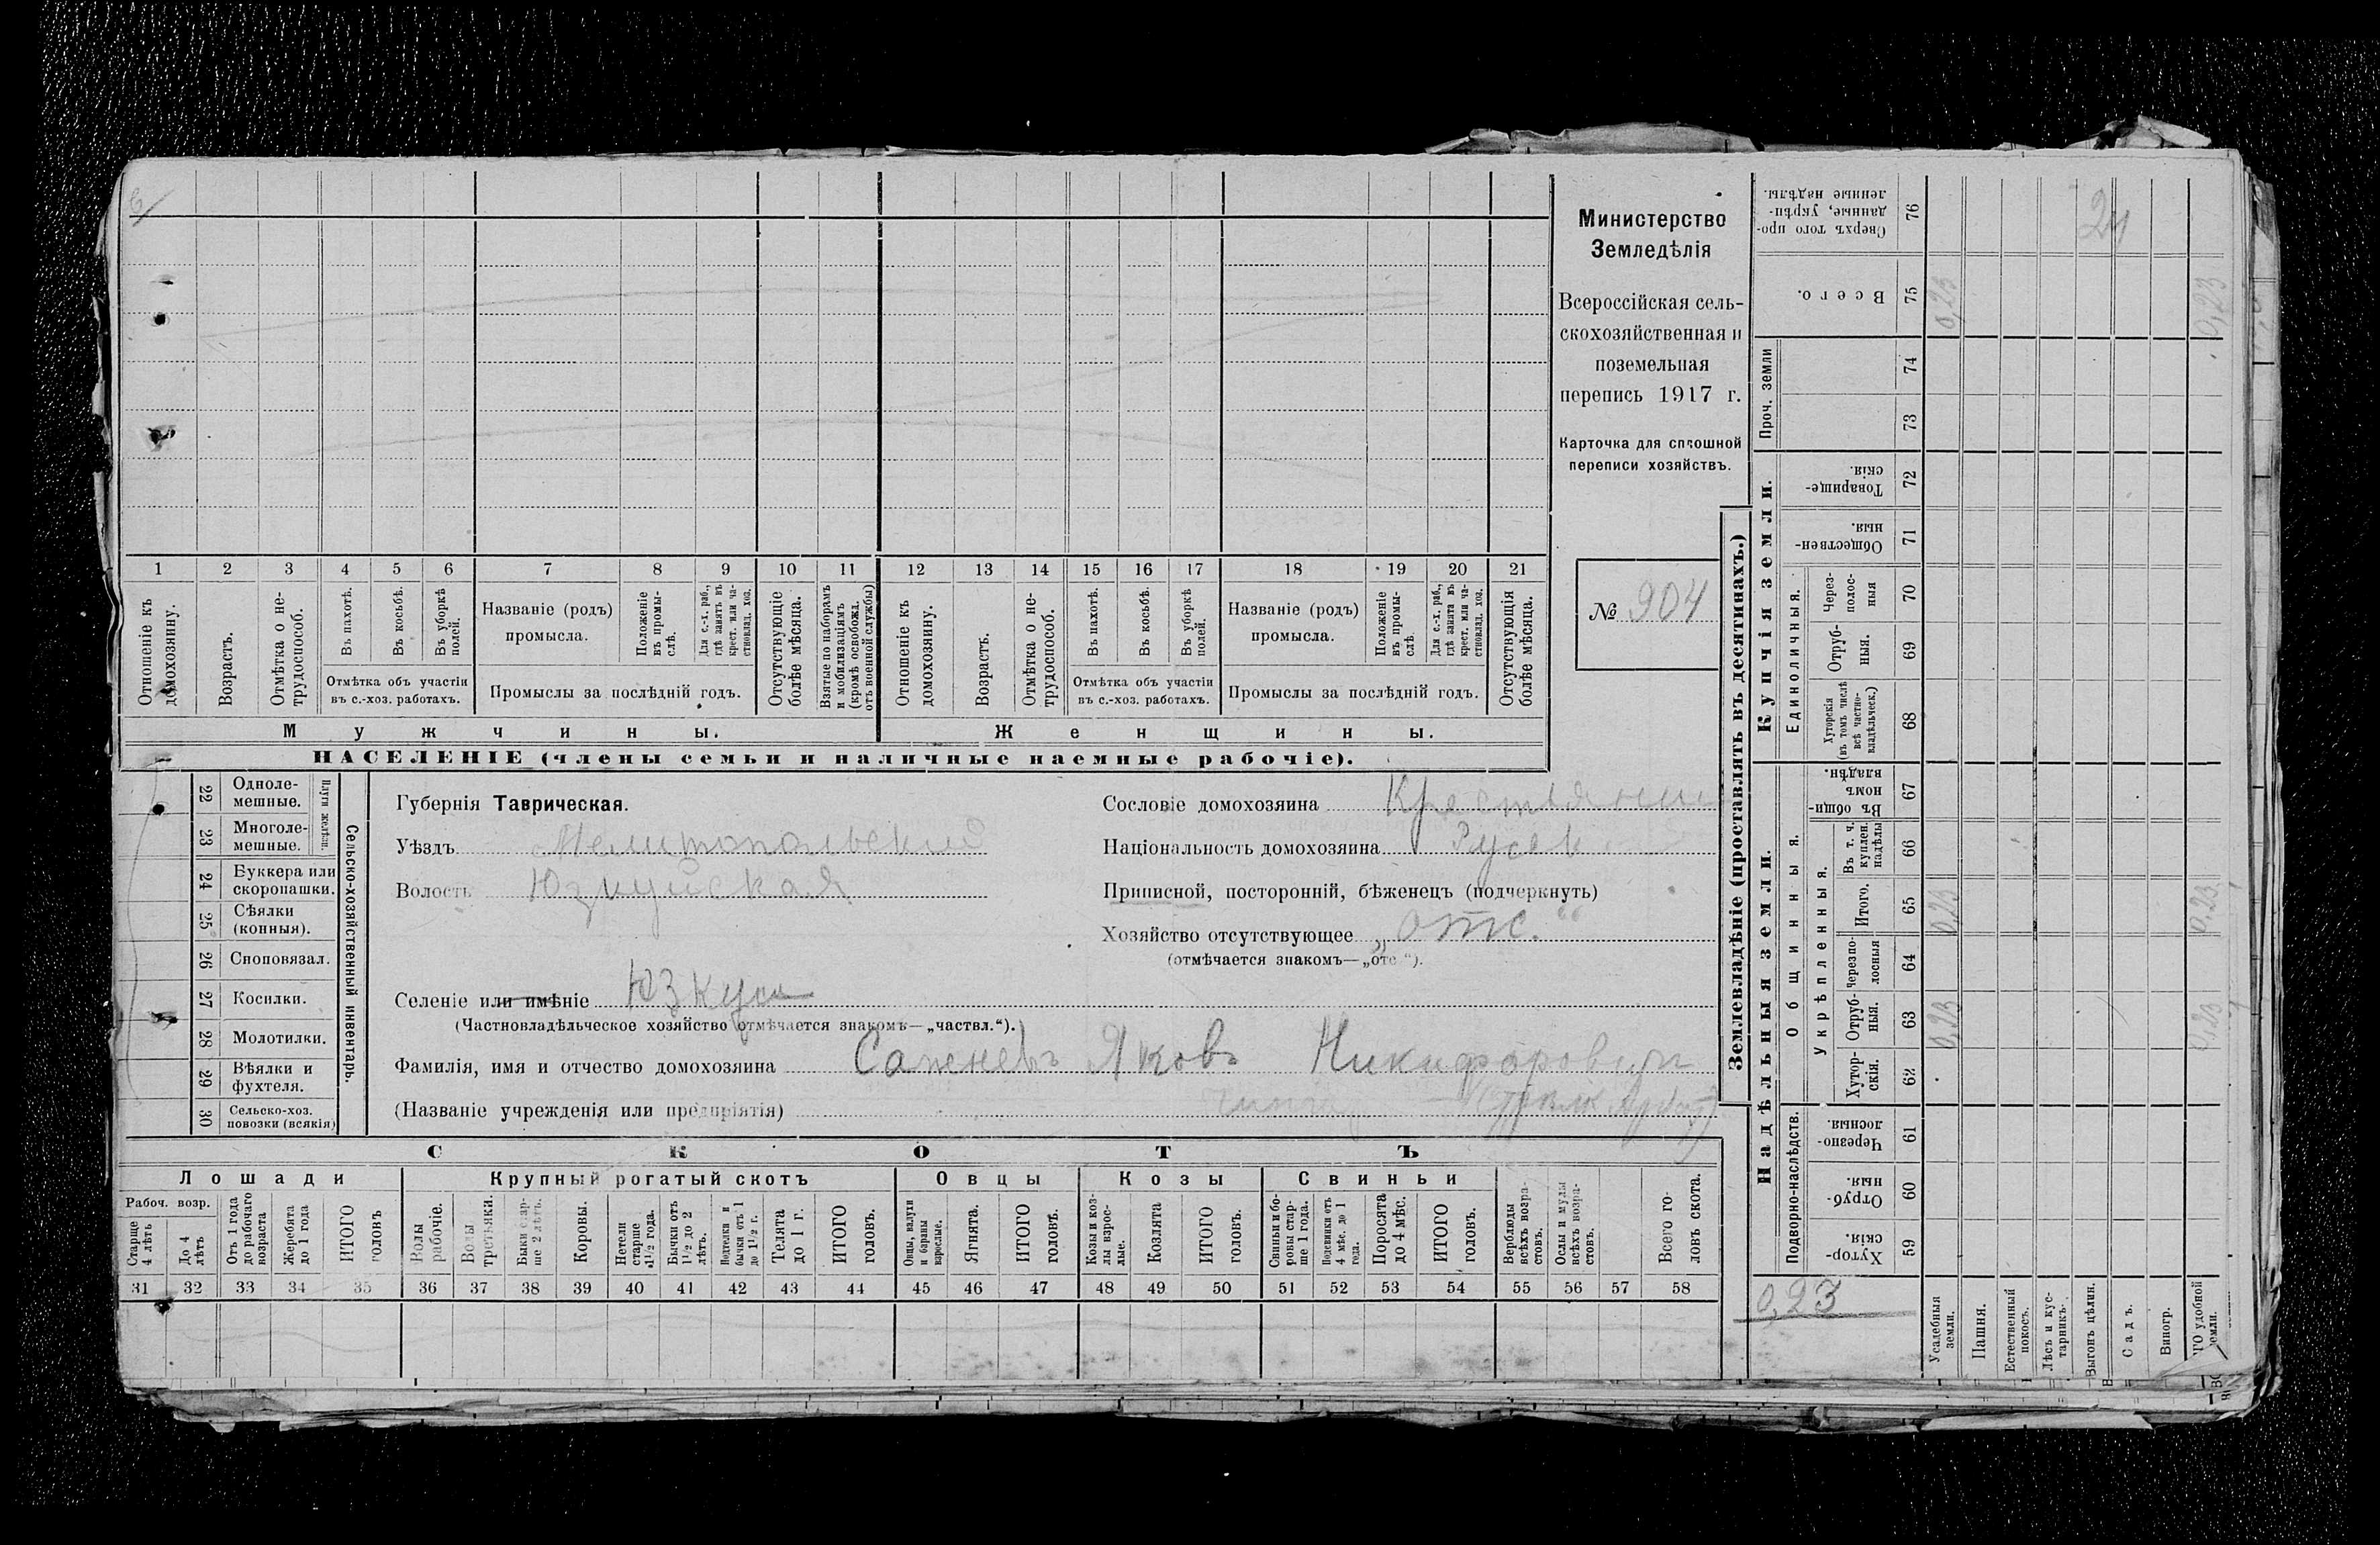 1 2 3 4 5 6 7 8 9 10 11 12 13 14 15 16 17 18 19 20 21
Отношеніе къ домохозяину.
Возрастъ.
Отмѣтка о не-трудоспособ.
Въ пахотѣ.
Въ косьбѣ.
Въ уборкѣ полей.
Отмѣтка объ участіи
въ с.-хоз. работахъ.
Названіе (родъ)
промысла.
Положеніе въ промы-слѣ.
Для с.-х. раб., гдѣ занятъ въ крест. или ча-стновлад. хоз.
Промыслы за послѣдній годъ.
Отсутствующіе болѣе мѣсяца.
Взятые по наборамъ и мобилизаціямъ (кромѣ освобожд. отъ военной службы)
Отношеніе къ домохозяину.
Возрастъ.
Отмѣтка о не-трудоспособ.
Въ пахотѣ.
Въ косьбѣ.
Въ уборкѣ полей.
Отмѣтка объ участіи
въ с.-хоз. работахъ.
Названіе (родъ)
промысла.
Положеніе въ промы-слѣ.
Для с.-х. раб., гдѣ занята въ крест. или ча-стновлад. хоз.
Промыслы за послѣдній годъ.
Отсутствующія болѣе мѣсяца.
Мужчины. Женщины.
НАСЕЛЕНІЕ (члены семьи и наличные наемные рабочіе).
Министерство
Земледѣлія
Всероссійская сель-
скохозяйственная и
поземельная
перепись 1917 г.
Карточка для сплошной
переписи хозяйствъ.
№ 904
22 Одноле-мешные.
23 Многоле-мешные.
Плуги желѣзн.
24 Буккера или скоропашки.
25 Сѣялки (конныя).
26 Сноповязал.
27 Косилки.
28 Молотилки.
29 Вѣялки и фухтеля.
30 Сельско-хоз. повозки (всякія)
Сельско-хозяйственный инвентарь.
Губернія Таврическая.
Уѣздъ Мелитопольский
Волость Юзкуйская
Сословіе домохозяина Крестьянин
Національность домохозяина Русск
Приписной, посторонній, бѣженецъ (подчеркнуть)
Хозяйство отсутствующее „отс.“
(отмѣчается знакомъ—„отс“).
Селеніе или имѣніе Юзкуи
(Частновладѣльческое хозяйство отмѣчается знакомъ—„частвл.“).
Фамилія, имя и отчество домохозяина Саженевъ Яковъ Никифорович
(Названіе учрежденія или предпріятія)
СКОТЪ
Лошади Крупный рогатый скотъ Овцы Козы Свиньи
Рабоч. возр.
Старше 4 лѣтъ
До 4 лѣтъ
Отъ 1 года до рабочаго возраста
Жеребята до 1 года
ИТОГО головъ
Волы рабочіе.
Волы третьяки.
Быки стар-ше 2 лѣтъ.
Коровы.
Нетели старше 1½ года.
Бычки отъ 1½ до 2 лѣтъ.
Подтелки и бычки отъ 1 до 1½ г.
Телята до 1 г.
ИТОГО головъ.
Овцы, валухи и бараны взрослые.
Ягнята.
ИТОГО головъ.
Козы и коз-лы взрос-лые.
Козлята
ИТОГО головъ.
Свиньи и бо-ровы стар-ше 1 года.
Подсвинки отъ 4 мѣс. до 1 года.
Поросята до 4 мѣс.
ИТОГО головъ.
Верблюды всѣхъ возра-стовъ.
Ослы и мулы всѣхъ возра-стовъ.
Всего го-ловъ скота.
31 32 33 34 35 36 37 38 39 40 41 42 43 44 45 46 47 48 49 50 51 52 53 54 55 56 57 58
Землевладѣніе (проставлять въ десятинахъ.)
Надѣльныя земли. Купчія земли. Проч. земли
Подворно-наслѣдств.
Общинныя.
Укрѣпленныя.
Единоличныя.
59 Хутор-скія.
60 Отруб-ныя.
61 Черезпо-лосныя.
62 Хутор-скія.
63 Отруб-ныя. 0,23
64 Черезпо-лосныя
65 Итого. 0,23 0,23
66 Въ т. ч. куплен. надѣлы
67 Въ общи-номъ владѣн.
68 Хуторскія (въ томъ числѣ всѣ частно-владѣльческ.)
69 Отруб-ныя.
70 Через-полос-ныя
71 Обществен-ныя.
72 Товарище-скія.
73
74
75 Всего. 0,23 0,23
76 Сверхъ того про-данные, укрѣп-ленные надѣлы.
0,23
Усадебныя земли.
Пашня.
Естественный покосъ.
Лѣсъ и кус-тарникъ.
Выгонъ цѣлин.
Садъ.
Виногр.